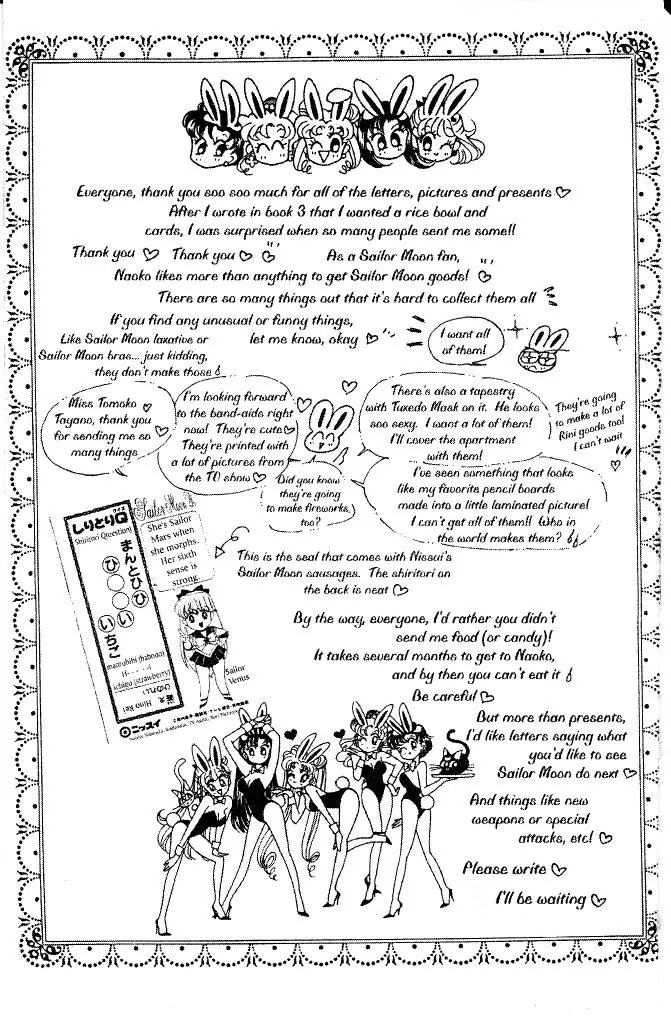 Everyone, thank you soo soo much for all of the letters, pictures and presents ♡
After I wrote in book 3 that I wanted a rice bowl and
cards, I was surprised when so many people sent me some!!
Thank you ♡ Thank you ♡ As a Sailor Moon fan,
Naoko likes more than anything to get Sailor Moon goods! ♡
There are so many things out that it's hard to collect them all
If you find any unusual or funny things,
Like Sailor Moon laxative or let me know, okay ♡
Sailor Moon bras... just kidding,
they don't make those
I want all
of them!
Miss Tomoko
Tayano, thank you
for sending me so
many things
I'm looking forward
to the band-aids right
now! They're cute ♡
They're printed with
a lot of pictures from
the TO show ♡
Did you know
they're going
to make fireworks,
too?
There's also a tapestry
with Tuxedo Mask on it. He looks
soo sexy. I want a lot of them!
I'll cover the apartment
with them!
They're going
to make a lot of
Rini goods too!
I can't wait
I've seen something that looks
like my favorite pencil boards
made into a little laminated picture!
I can't get all of them!! Who in
the world makes them?
クイズ
しりとりQ
Shiritori Question
まんとひひ
ひ○○い
いちご
mantohihi (baboon)
ichigo (strawberry)
Hino Rei
ニッスイ
Sailor
She's Sailor
Mars when
she morphs.
Her sixth
sense is
strong
Sailor
Venus
This is the seal that comes with Nissui's
Sailor Moon sausages. The shiritori on
the back is neat ♡
By the way, everyone, I'd rather you didn't
send me food (or candy)!
It takes several months to get to Naoko,
and by then you can't eat it
Be careful ♡
But more than presents,
I'd like letters saying what
you'd like to see
Sailor Moon do next ♡
And things like new
weapons or special
attacks, etc! ♡
Please write ♡
I'll be waiting ♡